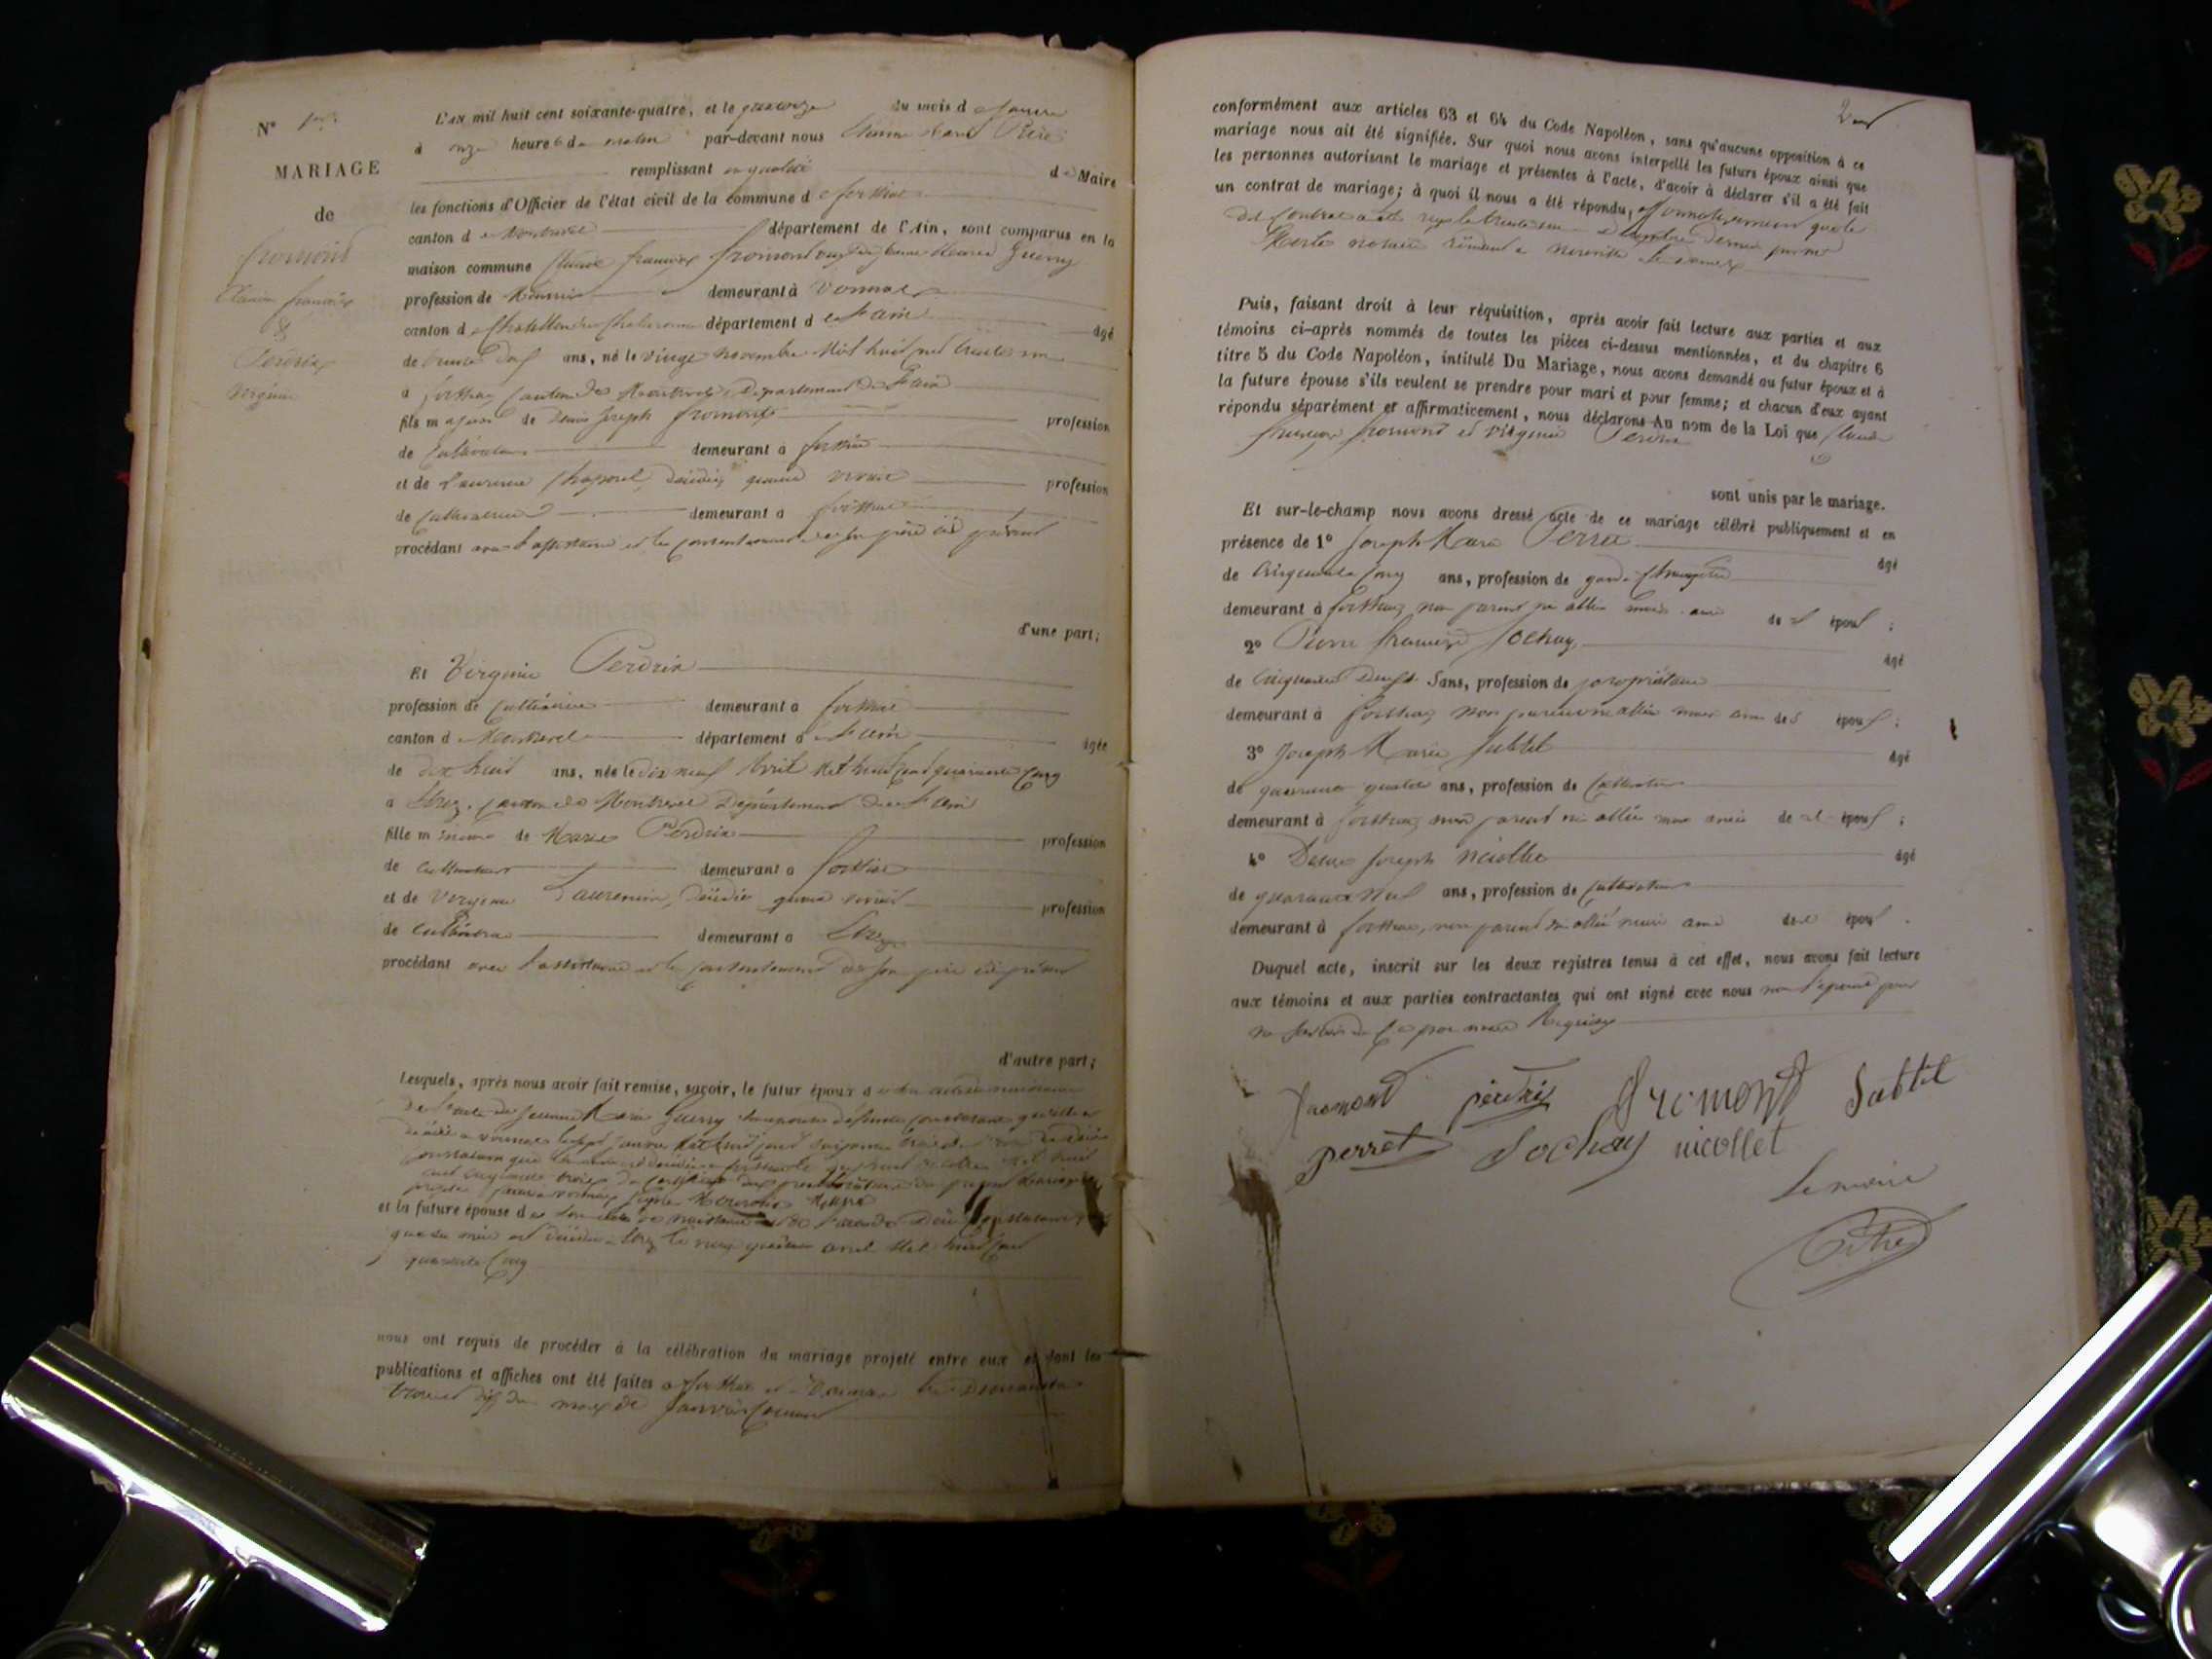 N° 1er
MARIAGE
de
fromont
Claude françois
&
Perdrix
Virginie
L'AN mil huit cent soixante-quatre, et le quatorze du mois de Janvier
à onze heures du matin par-devant nous
remplissant en qualité de Maire
les fonctions d'Officier de l'état civil de la commune de
canton de Montrevel département de l'Ain, sont comparus en la
maison commune Claude françois fromont veuf de Jeanne Marie Guerry
profession de demeurant à Vonnas
canton de Chatillon sur Chalaronne département de l'ain âgé
de trente deux ans, né le vingt novembre Mil huit cent trente un
à canton de Montrevel, Département de l'ain
fils majeur de Denis Joseph fromont profession
de Cultivateur demeurant à
et de Laurence décédée, quand vivait profession
de cultivatrice demeurant à
procédant avec l'assistance et le consentement de son père ici présent
d'une part;
Et Virginie Perdrix
profession de cultivatrice demeurant à
canton de Montrevel département de l'ain âgée
de dix huit ans, née le dix neuf Avril Mil huit cent quarante cinq
à Etrez, canton de Montrevel Département de l'ain
fille mineure de Marie Perdrix profession
de cultivateur demeurant à
et de Virginie Laurencin, décédée quand vivait profession
de cultivatrice demeurant à Etrez
procédant avec l'assistance et le consentement de son père ici présent
d'autre part;
Lesquels, après nous avoir fait remise, savoir, le futur époux de son acte de naissance
de l'acte de Jeanne Marie Guerry son épouse défunte constatant qu'elle est
décédée à vonnas le sept janvier Mil huit cent soixante trois
constatant que sa mère est décédée à
et la future épouse de son acte de naissance et de l'acte de Décès constatant
que sa mère est décédée à Etrez le vingt quatre avril Mil huit cent
quarante cinq
nous ont requis de procéder à la célébration du mariage projeté entre eux et dont les
publications et affiches ont été faites à et à Vonnas les Dimanches
trois et dix du mois de Janvier courant
2
conformément aux articles 63 et 64 du Code Napoléon, sans qu'aucune opposition à ce
mariage nous ait été signifiée. Sur quoi nous avons interpellé les futurs époux ainsi que
les personnes autorisant le mariage et présentes à l'acte, d'avoir à déclarer s'il a été fait
un contrat de mariage; à quoi il nous a été répondu, affirmativement que le
dit Contrat a été reçu le trente un décembre dernier par Me
notaire résidant à
Puis, faisant droit à leur réquisition, après avoir fait lecture aux parties et aux
témoins ci-après nommés de toutes les pièces ci-dessus mentionnées, et du chapitre 6
titre 5 du Code Napoléon, intitulé Du Mariage, nous avons demandé au futur époux et à
la future épouse s'ils veulent se prendre pour mari et pour femme; et chacun d'eux ayant
répondu séparément et affirmativement, nous déclarons Au nom de la Loi que Claude
françois fromont et Virginie Perdrix
sont unis par le mariage.
Et sur-le-champ nous avons dressé acte de ce mariage célébré publiquement et en
présence de 1° Joseph Marie Perret âgé
de cinquante cinq ans, profession de garde champêtre
demeurant à non parent ni allié mais ami de l' époux ;
2° Pierre françois Sochay âgé
de cinquante deux ans, profession de propriétaire
demeurant à non parent ni allié mais ami des époux ;
3° Joseph Marie Subtil âgé
de quarante quatre ans, profession de Cultivateur
demeurant à non parent ni allié mais ami de l' époux ;
4° Denis Joseph nicollet âgé
de quarante neuf ans, profession de Cultivateur
demeurant à non parent ni allié mais ami de l' époux .
Duquel acte, inscrit sur les deux registres tenus à cet effet, nous avons fait lecture
aux témoins et aux parties contractantes qui ont signé avec nous non l'épouse pour
ne savoir de ce par nous Requise
fromont perdrix fromont Subtil
perret Sochay nicollet
Le maire